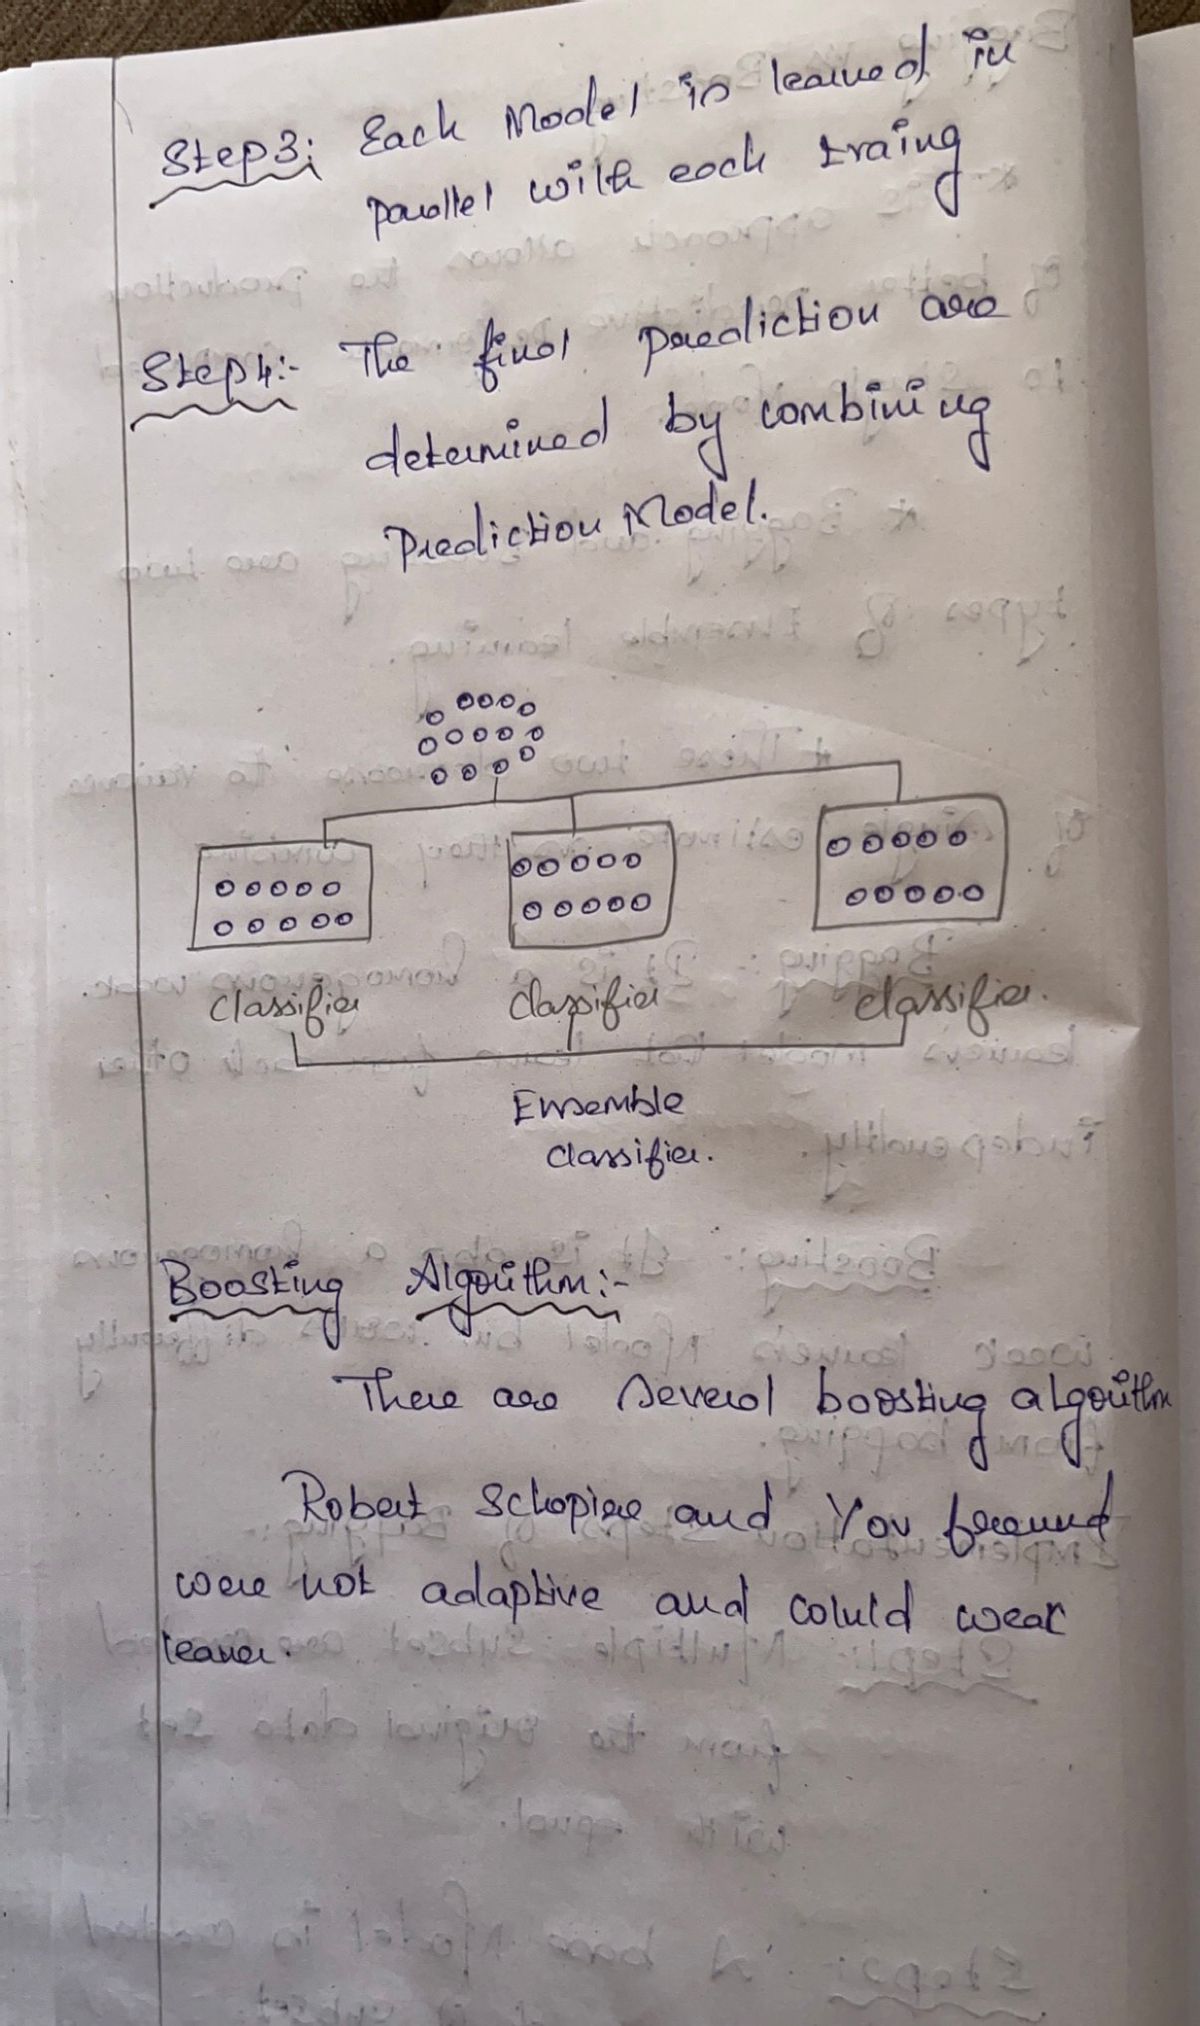 Step3: Each Model is learned in
parallel with each traing
Step4:- The final prediction are
determined by combining
Prediction Model.
Classifier Classifier Classifier.
Ensemble
Classifier.
Boosting Algorithm:-
There are several boosting algorithm
Robert Schopire and You freound
were not adaptive and coluld weak
leaner.